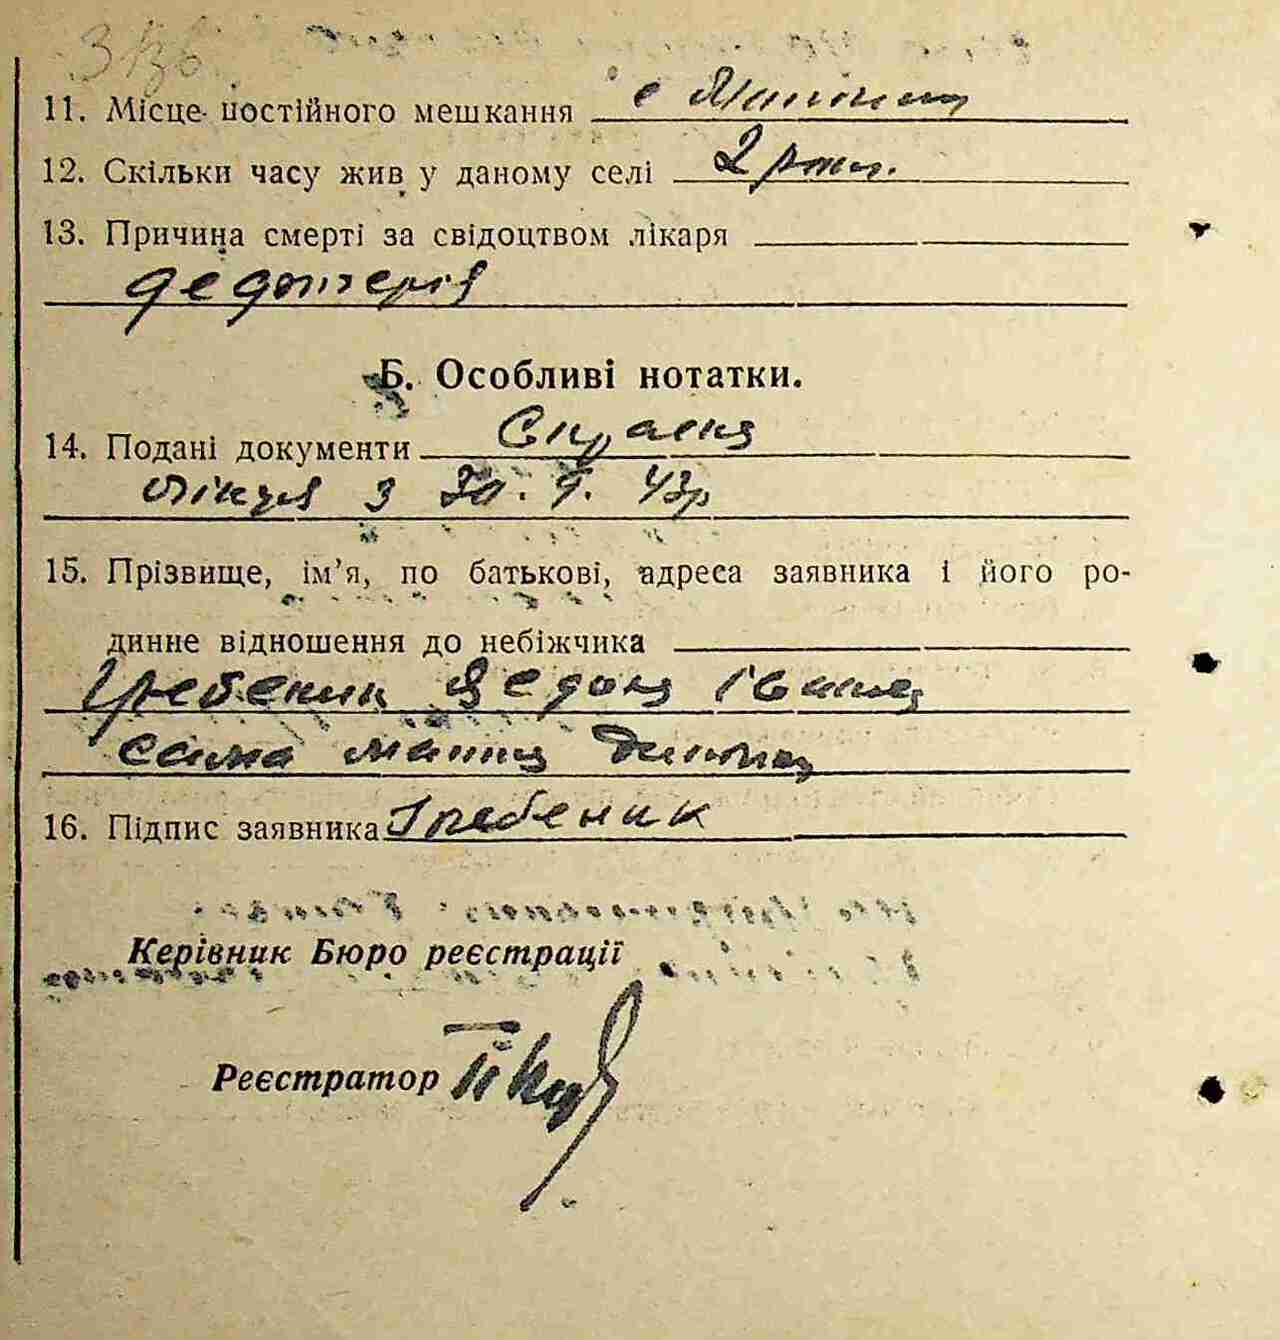 11. Місце постійного мешкання с
12. Скільки часу жив у даному селі 2 роки.
13. Причина смерті за свідоцтвом лікаря
Б. Особливі нотатки.
14. Подані документи
з 30. 43р
15. Прізвище, ім’я, по батькові, адреса заявника і його ро-
динне відношення до небіжчика
Гребеник Івани
сама мати
16. Підпис заявника Гребеник
Керівник Бюро реєстрації
Реєстратор